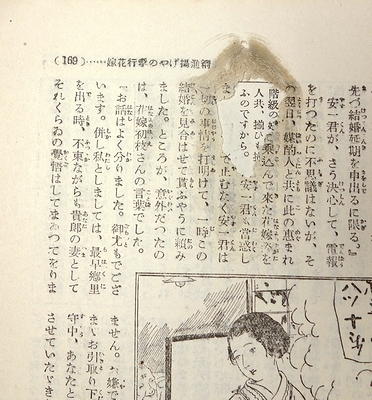 (169)……嫁花行挙のやげ揚進網
先づ結婚延期を申出るに限る。』
安一君が、さう決心して、電報
を打つたのに不思議はないが、そ
の翌日、媒酌人と共に此の恵まれ
階級の 乗込んで来た若嫁を
人共、強ひも 安一君、当惑し
ふのですから。
ま で止むなく安一君は
一切の事情を打明けて、一時この
結婚を見合はせて貰ふやうに頼み
ました。ところが、意外だつたの
は、花嫁初枝さんの言葉でした。
『お話はよく分りました。御尤もでござ
います。併し私としましては、最早郷里
を出る時、不束ながらも貴郎の妻として
それくらゐの覚悟はしてまゐつて居りま
ません。
まゝお引取り下
守中、あなたと
させていたゞき
八ツ十